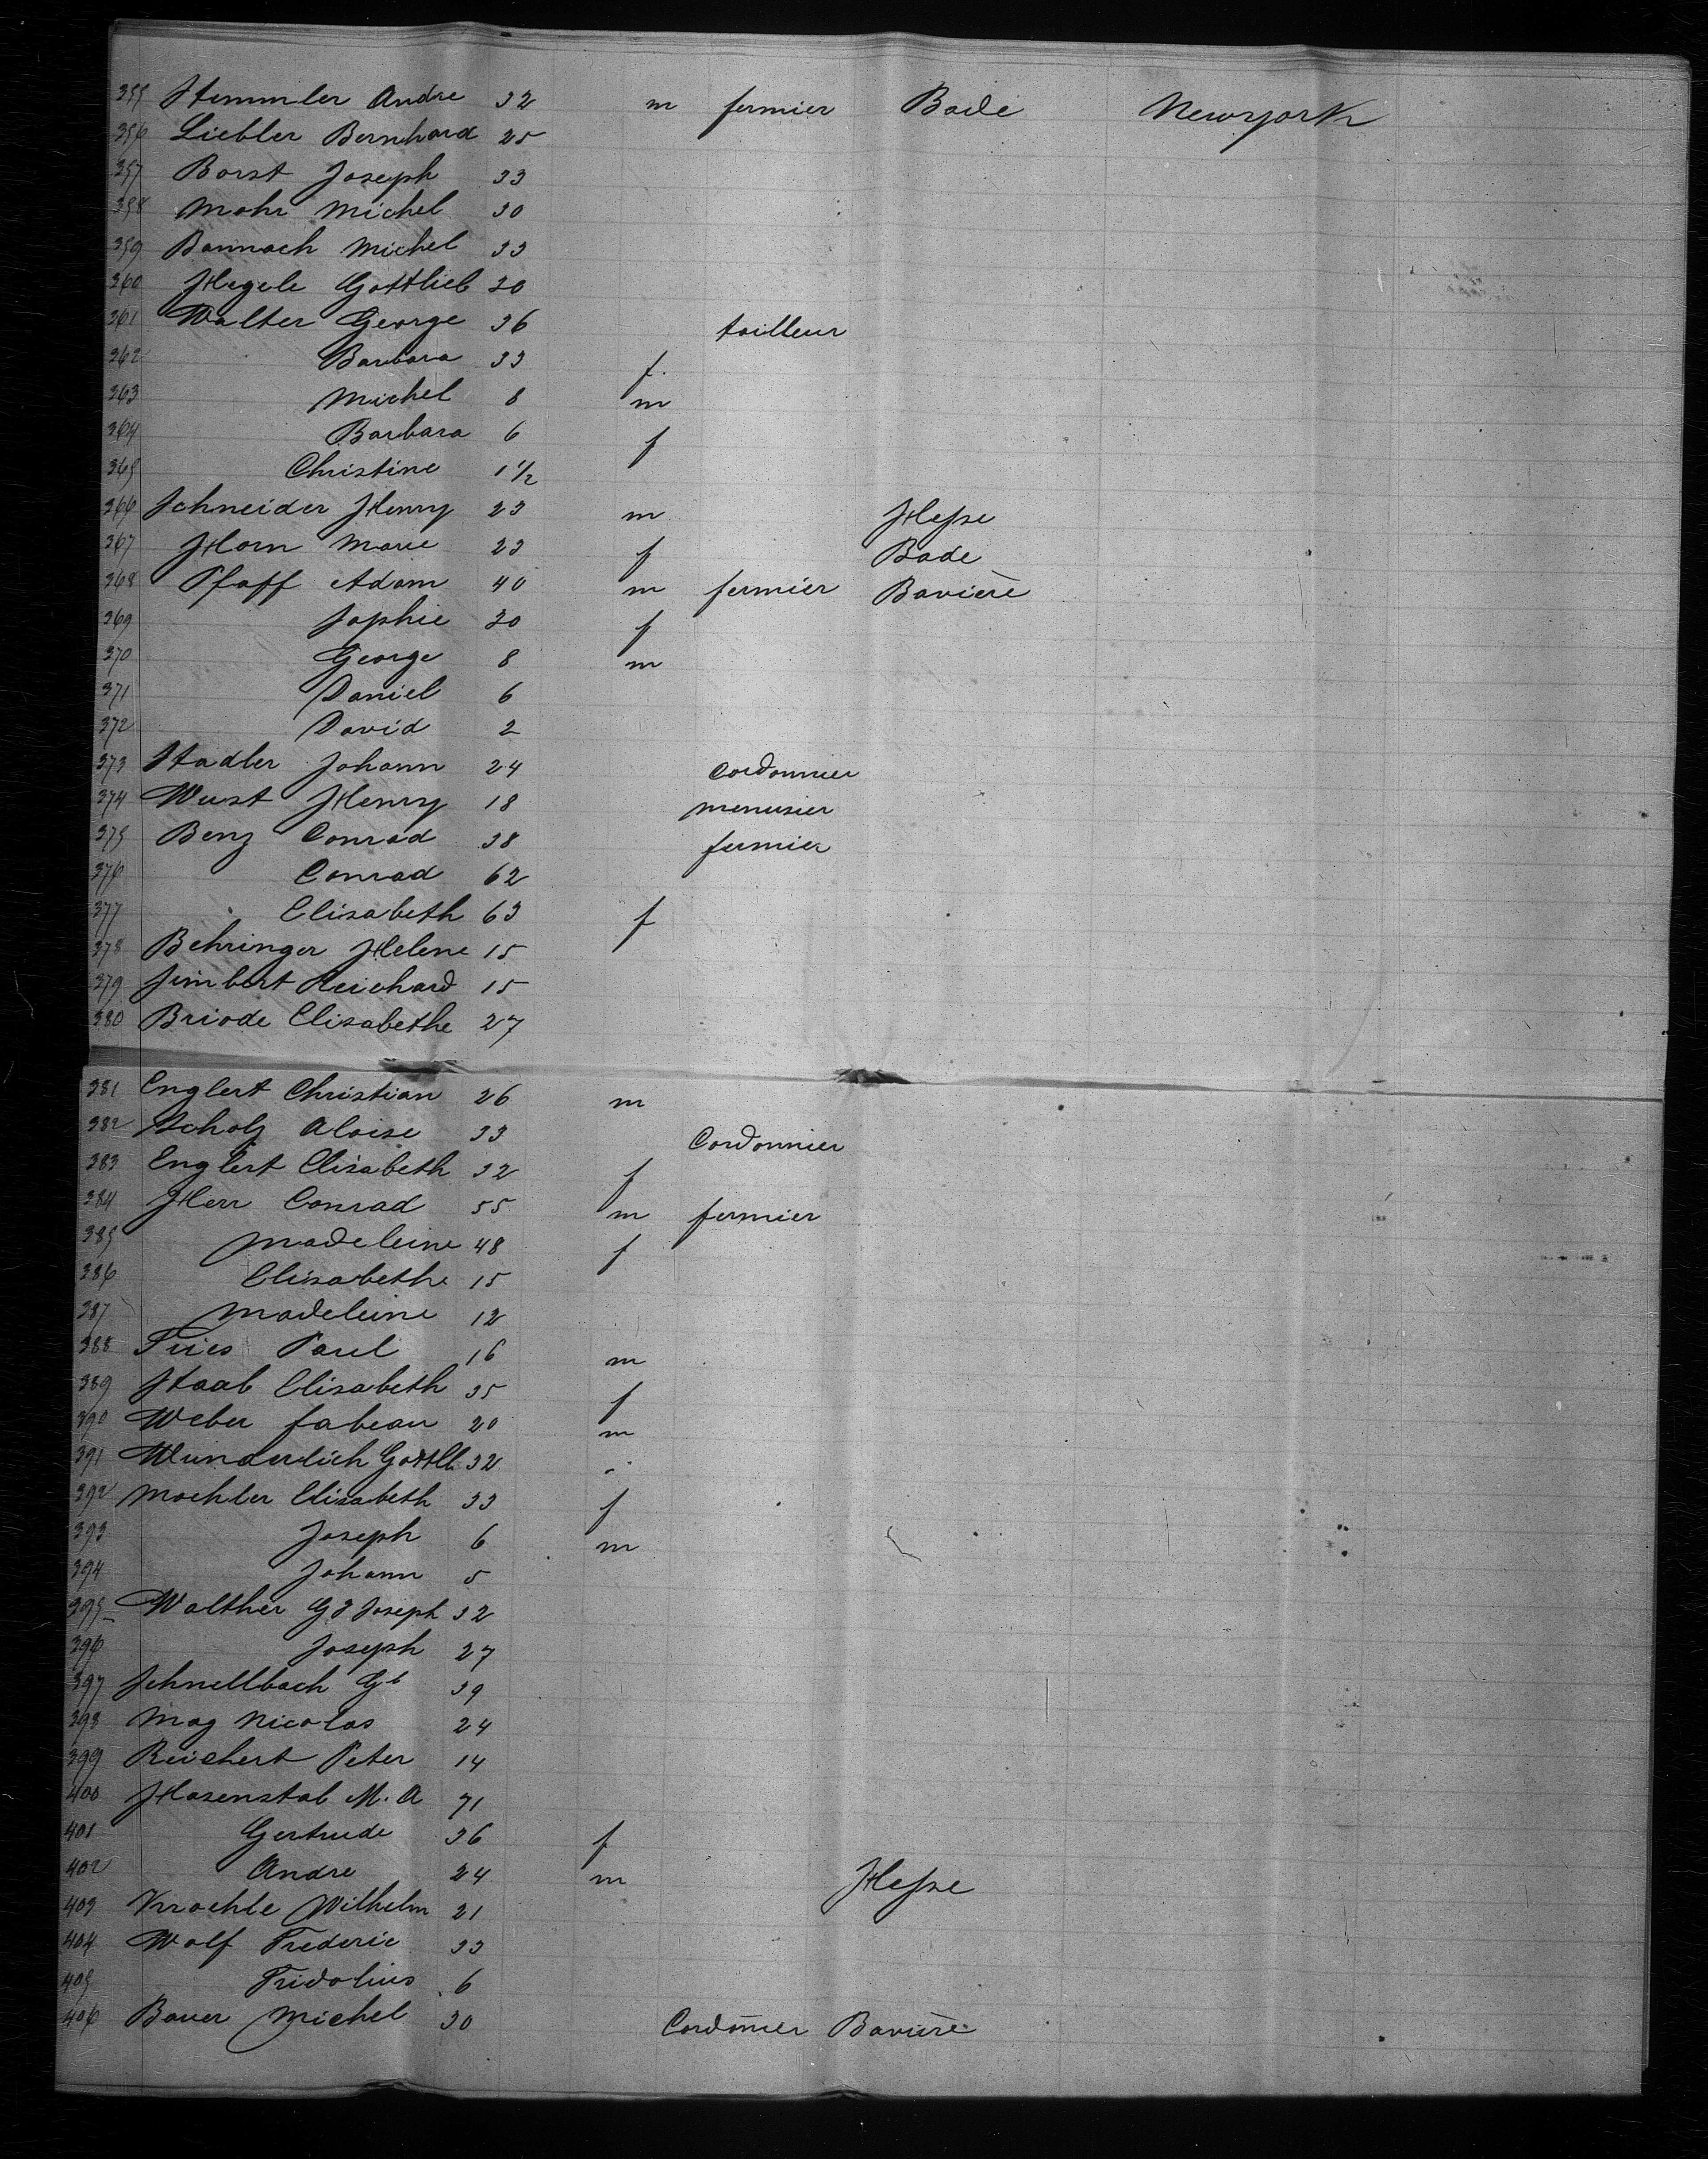 355 Stemmler Andre 32 m fermier Bade Newyork
356 Liebler Bernhard 25
357 Borst Joseph 33
358 Mohr Michel 30
359 Bannach Michel 33
360 Hegele Gottlieb 30
361 Walter George 36 tailleur
362 Barbara 33 f.
363 Michel 8 m
364 Barbara 6 f
365 Christine 1 1/2
366 Schneider Henry 23 m Hesse
367 Horn Marie 23 f Bade
368 Pfaff Adam 40 m fermier Bavière
369 Sophie 30 f
370 George 8 m
371 Daniel 6
372 David 2
373 Stadler Johann 24 Cordonnier
374 Wust Henry 18 menusier
375 Benz Conrad 38 fermier
376 Conrad 62
377 Elisabeth 63 f
378 Behringer Helene 15
379 Simbert Reichard 15
380 Briode Elisabethe 27
381 Englert Christian 26 m
382 Scholz Aloise 33 Cordonnier
383 Englert Elisabeth 32 f
384 Herr Conrad 55 m fermier
385 Madeleine 48 f
386 Elisabethe 15
387 Madeleine 12
388 Fries Paul 16 m
389 Staab Elisabeth 35 f
390 Weber fabean 20 m
391 Wunderlich Gottlb 32
392 Moehler Elisabeth 33 f
393 Joseph 6 m
394 Johann 5
395 Walther Joseph 32
396 Joseph 27
397 Schnellbach Gb 39
398 Mag Nicolas 24
399 Reichert Peter 14
400 Hasenstab M. A 71
401 Gertrude 36 f
402 Andre 24 m Hesse
403 Kroehle Wilhelm 21
404 Wolf Frederic 33
405 Fridolius 6
406 Bauer Michel 30 Cordonier Bavière